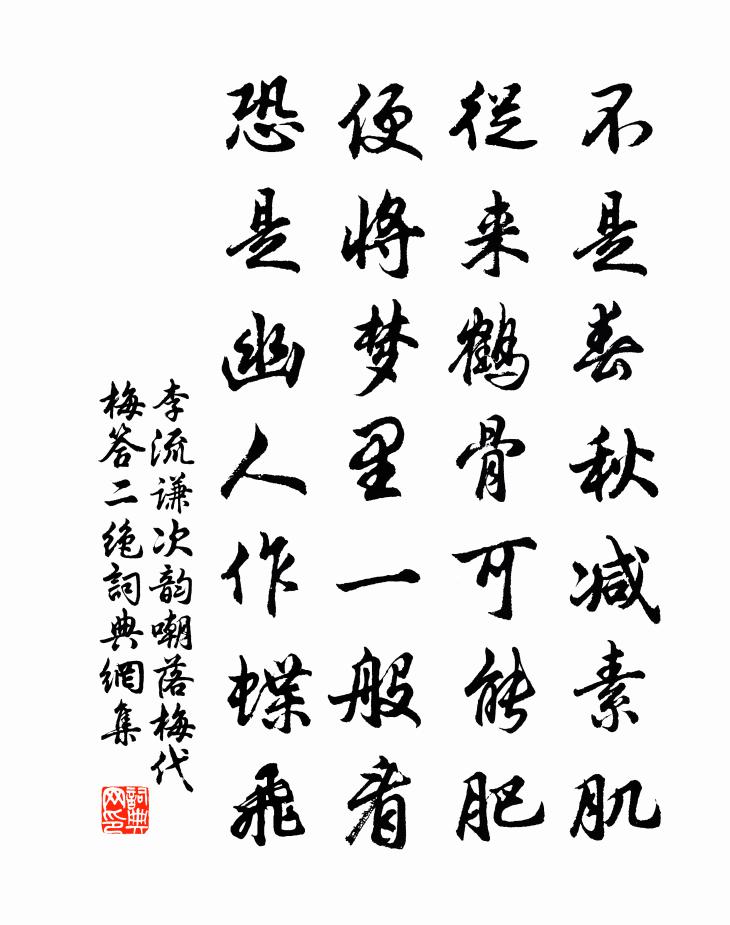 不是春秋减素肌
從来鹤骨可能肥
便将梦里一般看
恐是幽人作蝶飛
李流谦次韵嘲落梅代
梅答二绝詞典網集
詞典
网印